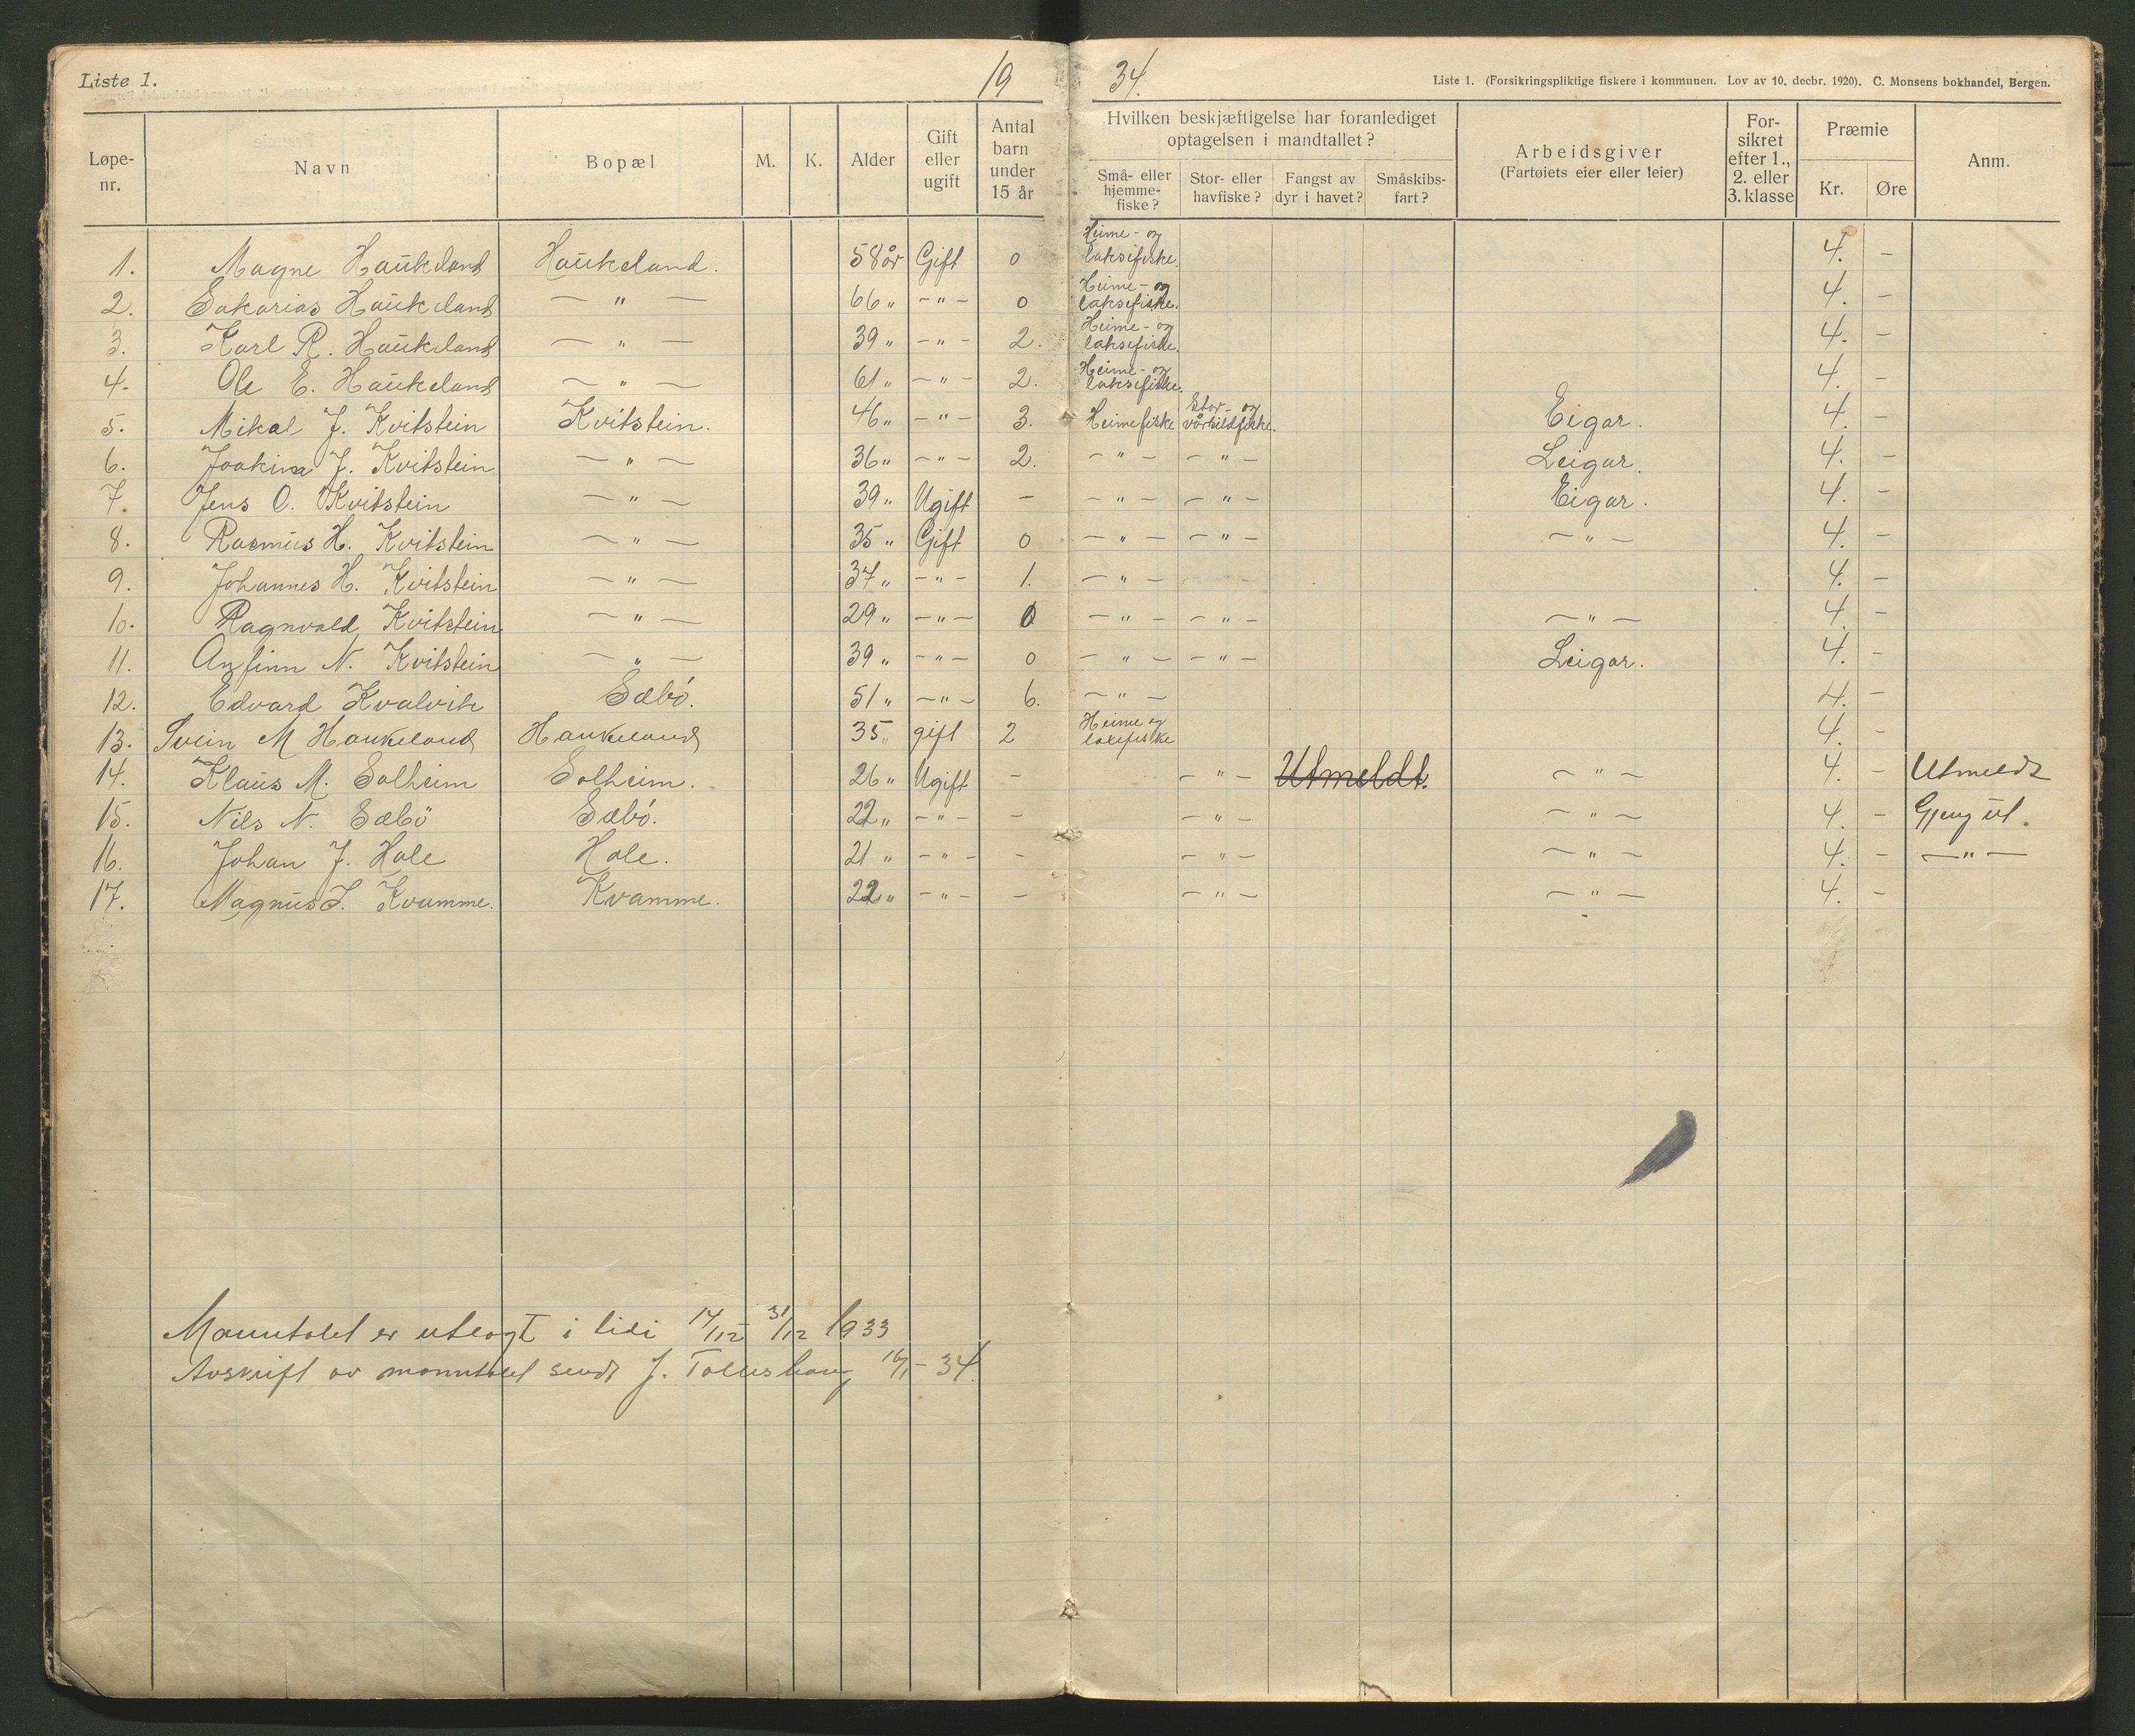 Liste 1.
19 34.
Liste 1. (Forsikringspliktige fiskere i kommunen. Lov av 10. decbr. 1920). C. Monsens bokhandel, Bergen.
Løpe-nr. Navn Bopæl M. K. Alder Gift eller ugift Antal barn under 15 år Hvilken beskjæftigelse har foranlediget optagelsen i mandtallet? Små- eller hjemme-fiske? Stor- eller havfiske? Fangst av dyr i havet? Småskibs-fart? Arbeidsgiver (Fartøiets eier eller leier) For-sikret efter 1., 2. eller 3. klasse Præmie Kr. Øre Anm.
1. Magne Haukeland Haukeland. 58 år Gift 0 Heime- og laksefiske. 4. –
2. Sakarias Haukeland — " — 66 " – " – 0 Heime- og laksefiske. 4. –
3. Karl R. Haukeland — " — 39 " – " – 2. Heime- og laksefiske. 4. –
4. Ole E. Haukeland — " — 61 " – " – 2. Heime- og laksefiske. 4. –
5. Mikal J. Kvitstein Kvitstein. 46 " – " – 3. Heimefiske Stor- og vårsildfiske. Eigar. 4. –
6. Joakim J. Kvitstein — " — 36 " – " – 2. – " – – " – Leigar. 4. –
7. Jens O. Kvitstein — " — 39 " Ugift – – " – – " – Eigar. 4. –
8. Rasmus H. Kvitstein — " — 35 " Gift 0 – " – – " – – " – 4. –
9. Johannes H. Kvitstein — " — 37 " – " – 1. – " – 4. –
10. Ragnvald Kvitstein — " — 29 " – " – 0 – " – – " – – " – 4. –
11. Anfinn N. Kvitstein — " — 39 " – " – 0 – " – – " – Leigar. 4. –
12. Edvard Kvalvik Sæbö. 51 " – " – 6. – " – 4. –
13. Svein M Haukeland Haukeland 35 " gift 2 Heime og laxefiske 4. –
14. Klaus M. Solheim Solheim. 26 " Ugift – – " – Utmeldt. – " – 4. – Utmeldt
15. Nils N. Sæbö Sæbö. 22 " – " – – – " – – " – 4. – Gjeng ut.
16. Johan J. Hole Hole. 21 " – " – – – " – – " – 4. – — " —
17. Magnus J. Kvamme. Kvamme. 22 " – " – – – " – – " – 4. –
Manntalet er utlagt i tidi 14/12 – 31/12 1933
Avskrift av manntalet sendt J. 16/1 – 34.